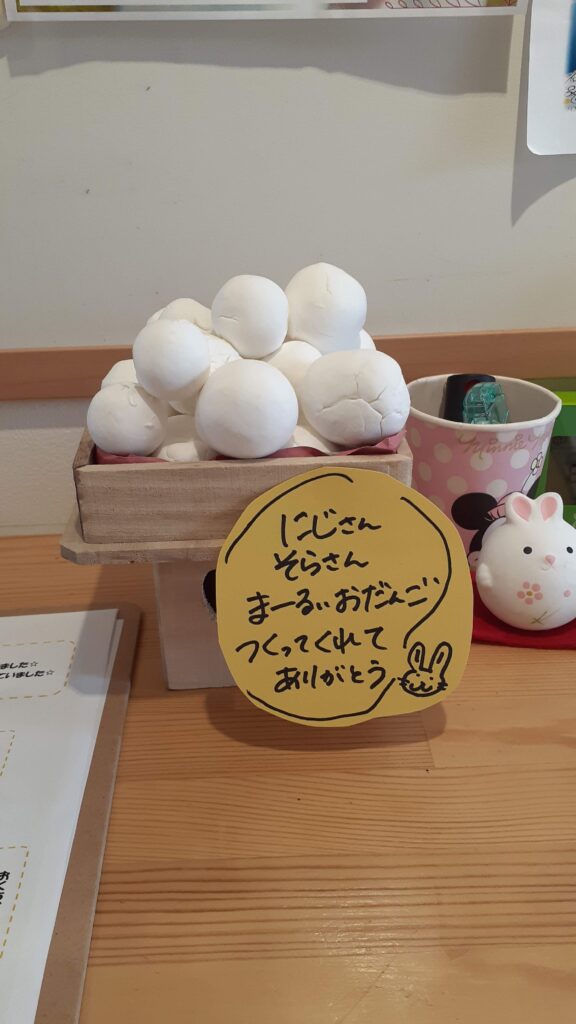 にじさん
そらさん
まーるぃおだんご
つくってくれて
ありがとう
Minnie
ました☆
ていました☆